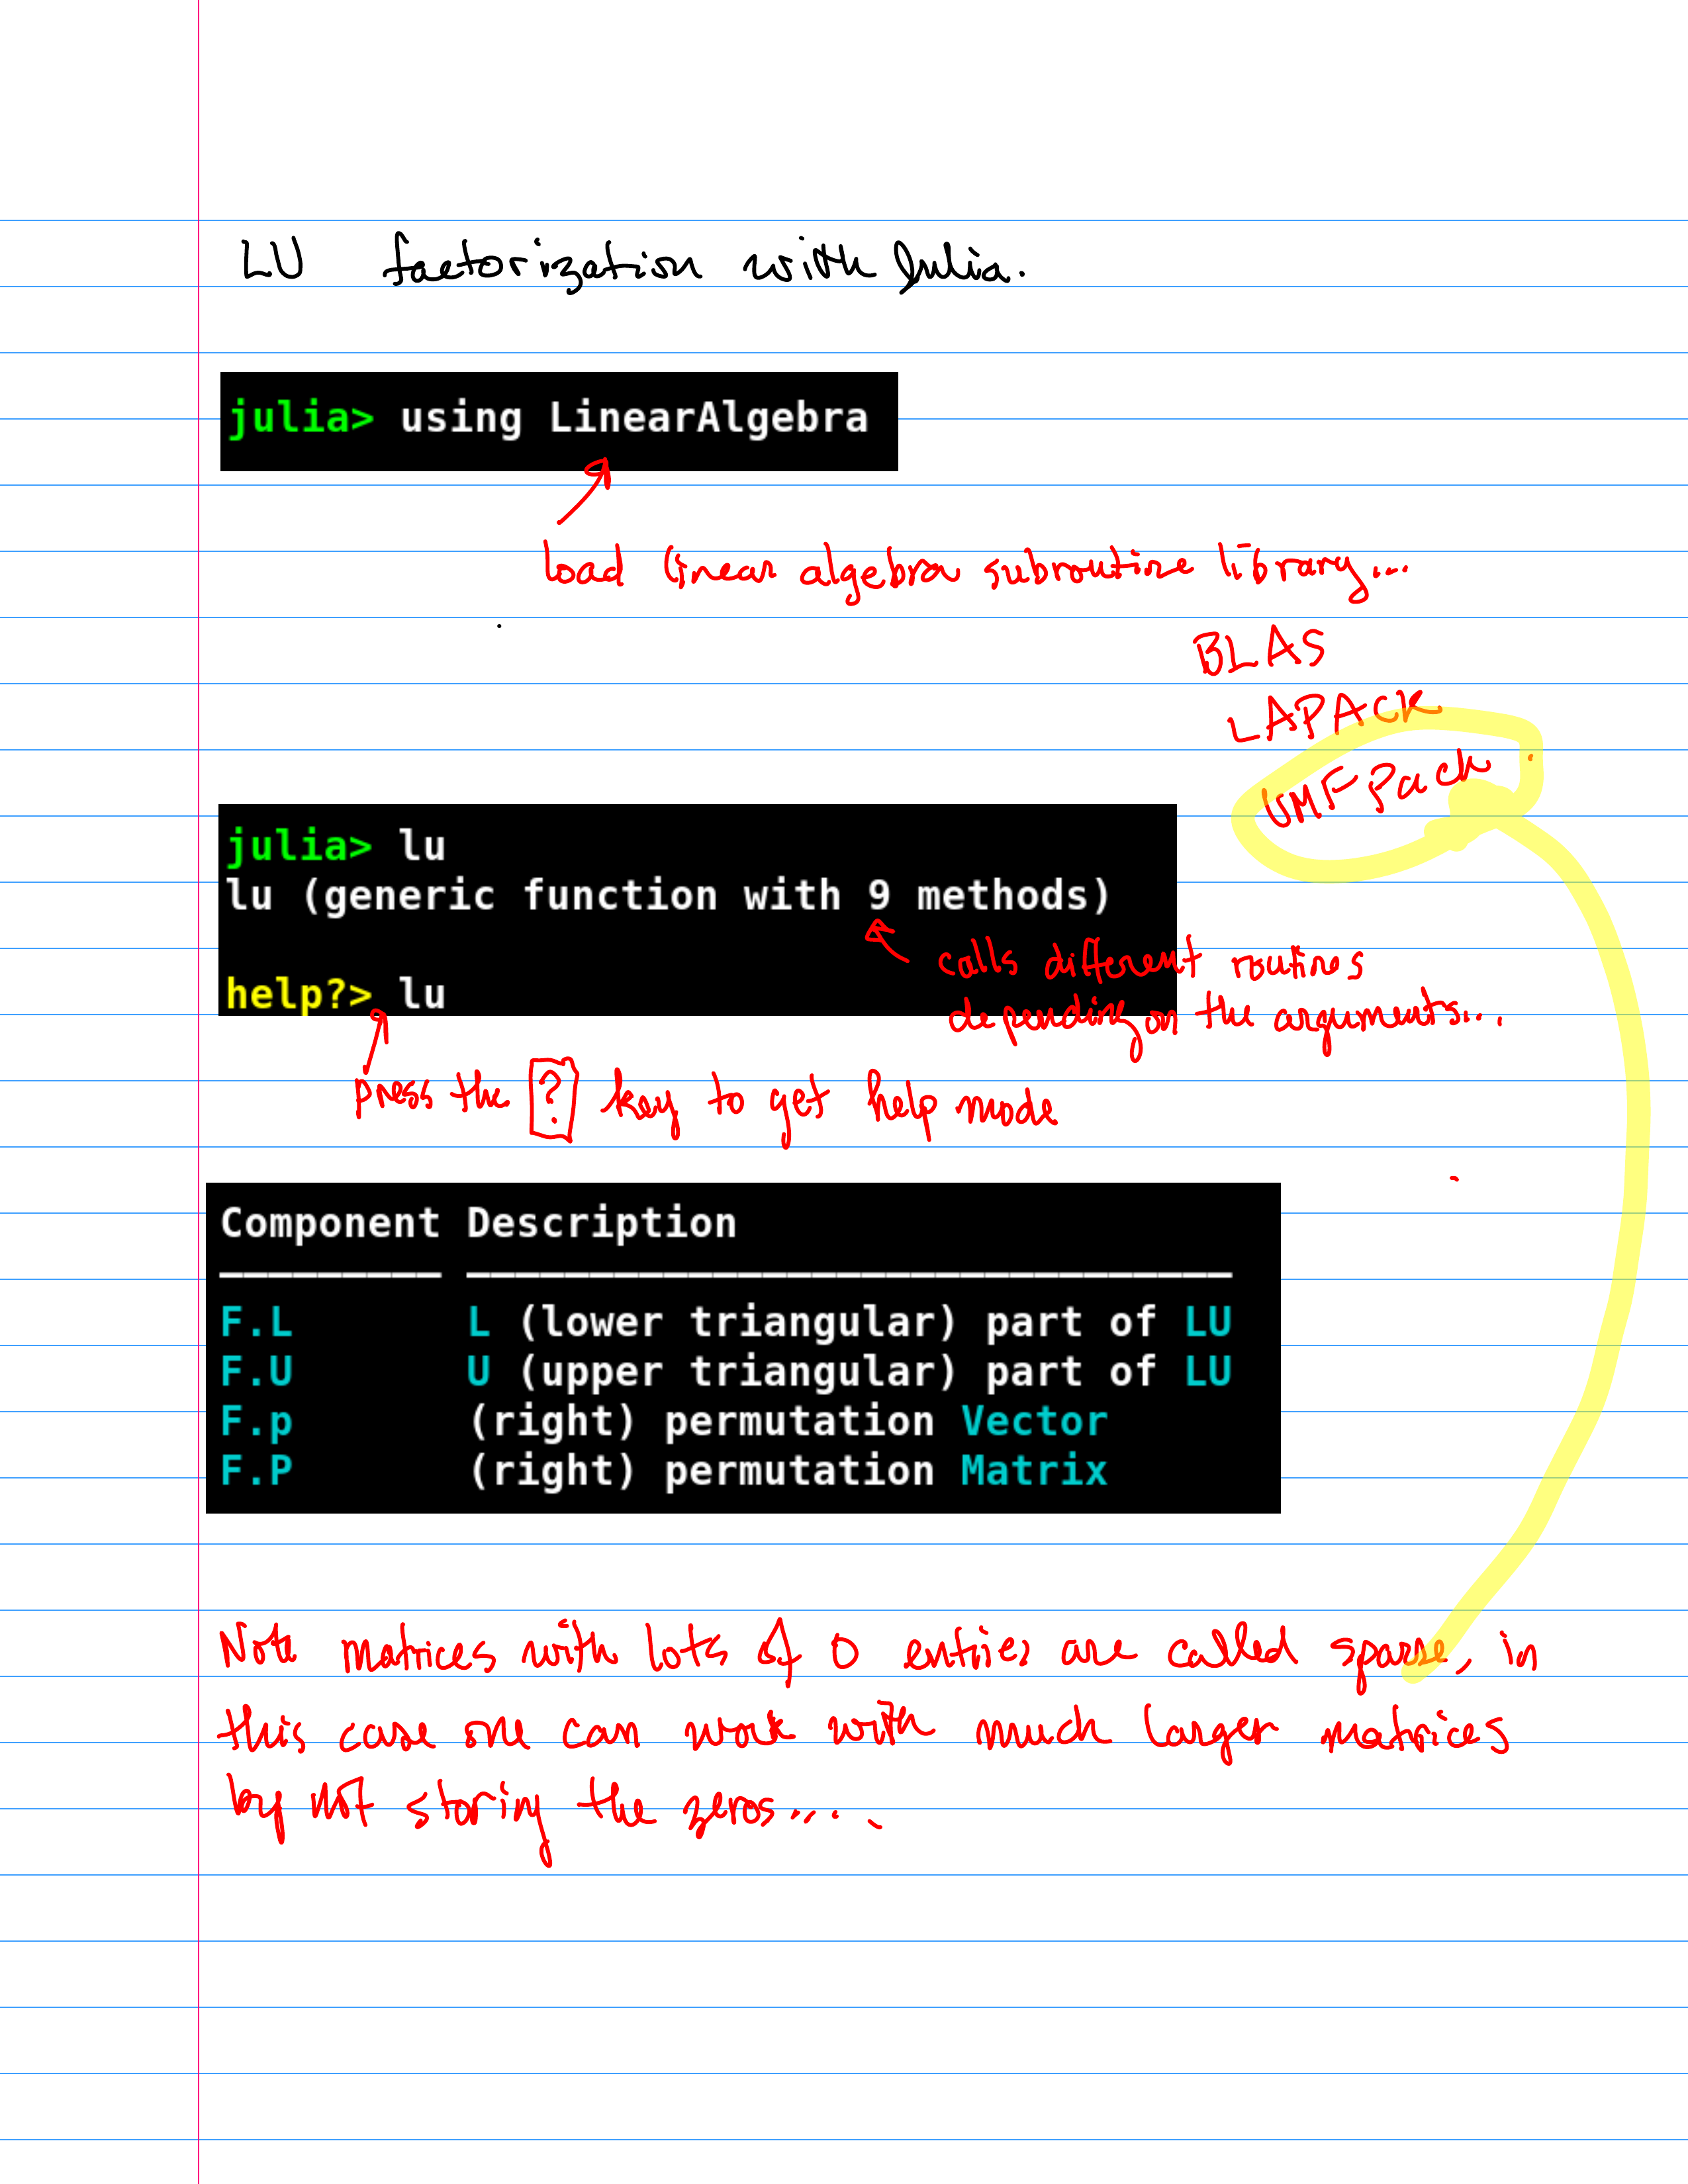 LU factorization with Julia.
julia> using LinearAlgebra
load linear algebra subroutine library...
BLAS
LAPACK
UMFPack
julia> lu
lu (generic function with 9 methods)
calls different routines
help?> lu
depending on the arguments...
press the ? key to get help mode
Component Description
F.L L (lower triangular) part of LU
F.U U (upper triangular) part of LU
F.p (right) permutation Vector
F.P (right) permutation Matrix
Note matrices with lots of 0 entries are called sparse, in
this case one can work with much larger matrices
by not storing the zeros....